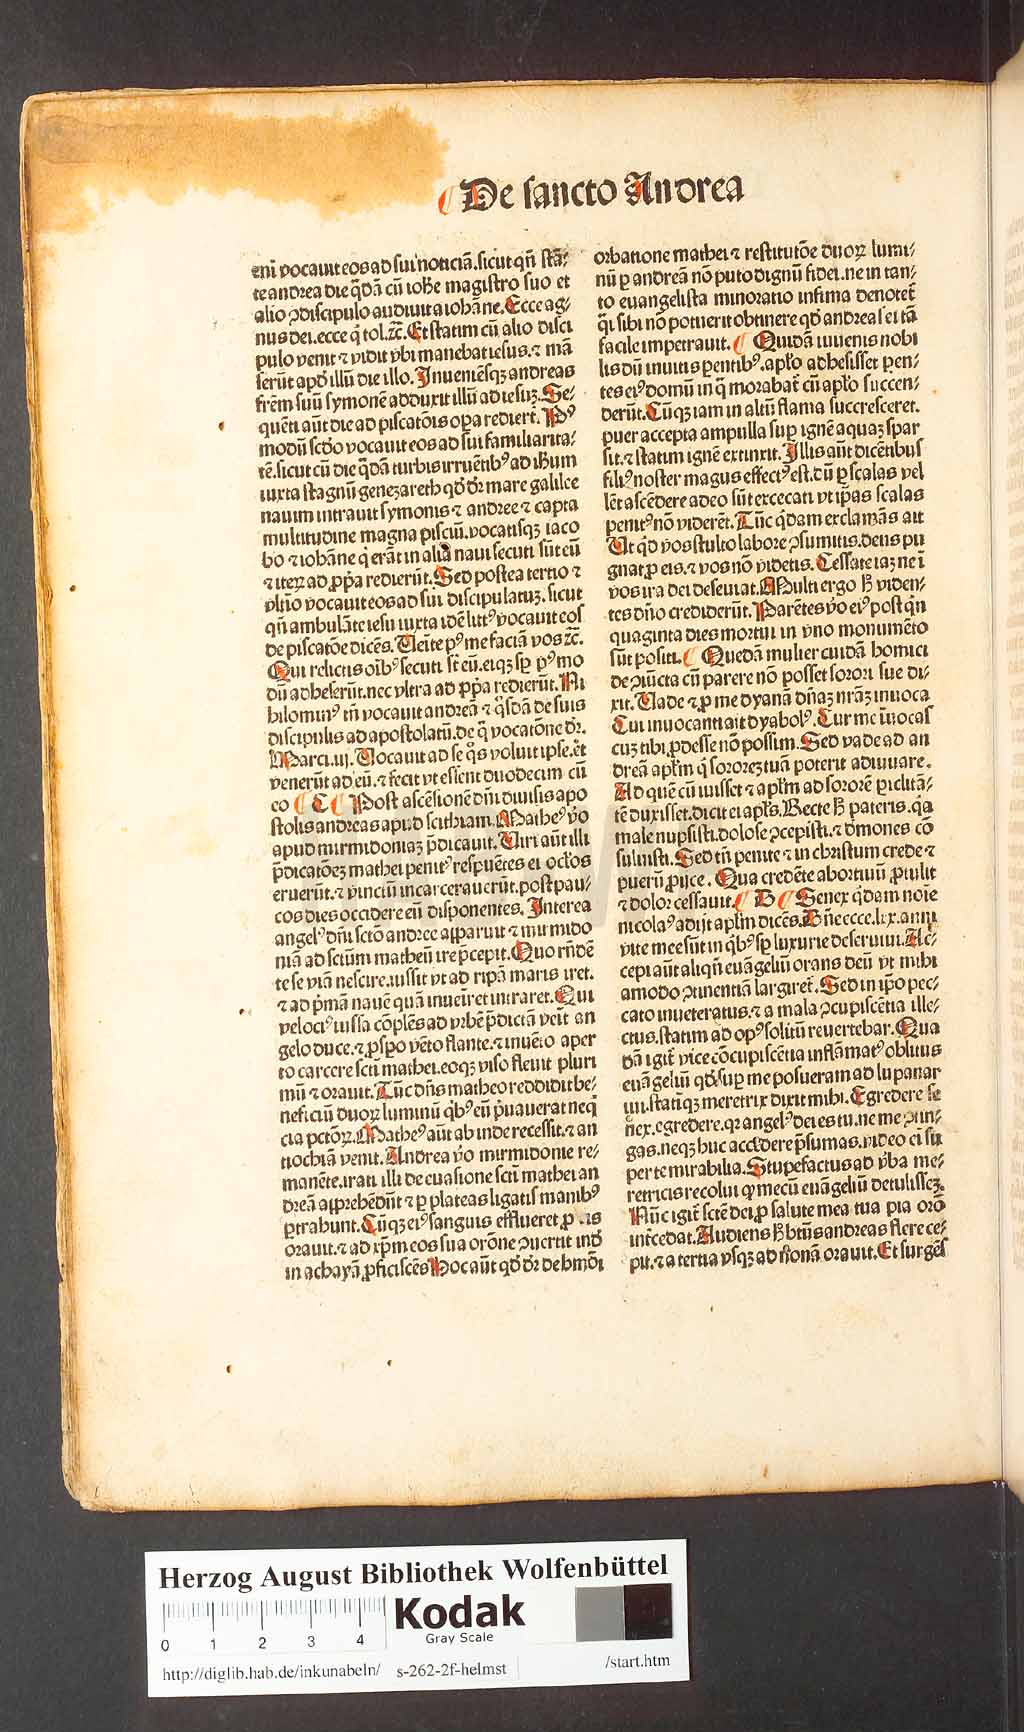 De sancto Andrea
eni vocauit eos ad sui noticiã.sicut qñ stã⸗
te andrea die q̃dã cũ iohe magistro suo et
alio ꝯdiscipulo audiuit a iohãne. Ecce ag⸗
nus dei.ecce q̇ tol.ꝛc̃. Et statim cũ alio disci
pulo venit ⁊ vidit vbi manebat iesus.⁊ mã
serũt apđ illũ die illo. Inueniẽsqꝫ andreas
frẽm suũ symonẽ adduxit illũ ad iesuꝫ. Se⸗
quẽti aũt die ad piscatõis oꝑa rediert̃. Pꝰ
modũ scđo vocauit eos ad sui familiarita⸗
tẽ.sicut cũ die q̃dã turbis irruẽtibꝰ ad ihum
iuxta stagnũ geneꝫareth qđ dr̃ mare galilee
nauim intrauit symonis ⁊ andree ⁊ capta
multitudine magna pisciũ.vocatisqꝫ iaco
bo ⁊ iohãne q̇ erãt in alia naui secuti sũt eũ
⁊ iterꝝ ad ꝓpͥa redierũt. Sed postea tertio ⁊
vltĩo vocauit eos ad sui discipulatuꝫ.sicut
qñ ambulãte iesu iuxta idẽ littꝰ vocauit eos
de piscatõe dicẽs. Ueĩte pꝰ me faciã vos ꝛc̃.
Qui relictis oĩbꝰ secuti st̃ eũ.eiqꝫ sꝑ pꝰ mo
dũ adheserũt.nec vltra ad ꝓpͥa redierũt. Ni
hilominꝰ tñ vocauit andreã ⁊ q̃sdã de suis
discipulis ad apostolatũ.de q̃ vocatõne dr̃.
Marci.iij. Uocauit ad se q̃s voluit ipse.et
venerũt ad eũ.⁊ fecit vt essent duodecim cũ
eo C Post ascẽsionẽ dñi diuisis apo
stolis andreas apud scithiam. Matheꝰ vo
apud mirmidoniaꝫ p̃dicauit. Uiri aũt illi
p̃dicatõeꝫ mathei penitꝰ respuẽtes ei oclos
eruerũt.⁊ vinctũ incarcerauerũt.post pau⸗
cos dies occidere eũ disponentes. Interea
angelꝰ dñi scto andree apparuit ⁊ mirmido
niã ad sctũm matheũ ire p̃cepit. Quo rñdẽ
te se viã nescire.iussit vt ad ripã maris iret.
⁊ ad pͥmã nauẽ quã inueiret intraret. Qui
velociꝰ iussa cõplẽs ad vrbẽ p̃dictã veit an
gelo duce.⁊ ꝓspo vẽto flante.⁊ inuẽto aper
to carcere scti mathei.eoqꝫ viso fleuit pluri
mũ ⁊ orauit. Tũc dñs matheo reddidit be⸗
neficiũ duoꝝ luminũ q̇bꝰ eũ pͥuauerat neq̃
cia pctõꝝ. Matheꝰ aũt ab inde recessit.⁊ an
tiochiã venit. Andrea vo mirmidonie re⸗
manẽte.irati illi de euasione scti mathei an
dreã apprehẽdũt ⁊ ꝑ plateas ligatis manibꝰ
ꝑtrahunt. Cũqꝫ eiꝰ sanguis efflueret ꝓ
orauit.⁊ ad xp̃m eos sua orõne ꝯuertit inđ
in achayã ꝓficiscẽs Hoc aũt qđ dr̃ de hmõi
orbatione mathei ⁊ restitutõe duoꝝ lumi⸗
nũ ꝑ andreã nõ puto dignũ fidei.ne in tan⸗
to euangelista minoratio infima denotet̃
q̃i sibi nõ potuerit obtinere qđ andreas ei tã
facile impetrauit. Quidã iuuenis nobi
lis dũ inuitis ꝑentibꝰ.aplo adhesisset ꝑen⸗
tes eiꝰ domũ in q̃ morabat̃ cũ aplo succen⸗
derũt. Cũqꝫ iam in altũ flama succresceret.
puer accepta ampulla suꝑ ignẽ aquaꝫ spar
sit.⁊ statim ignẽ extinxit. Illis aũt dicẽtibus
filiꝰ noster magus effectꝰ est.dũ ꝑ scalas vel
lẽt ascẽdere adeo sũt excecati vt ip̃as scalas
penitꝰ nõ viderẽt. Tũc q̇dam exclamãs ait
Ut qđ vos stulto labore ꝯsumitis.deus pu
gnat ꝓ eis.⁊ vos nõ videtis. Cessate iaꝫ ne ĩ
vos ira dei deseuiat. Multi ergo ħ viden⸗
tes dño crediderũt. Parẽtes vo eiꝰ post qñ
quaginta dies mortui in vno monumẽto
sũt positi. Quedã mulier cuidã homici
de ꝯiũcta cũ parere nõ posset sorori sue di⸗
xit. Uade ⁊ ꝓ me dyanã dñaꝫ nrãꝫ inuoca
Cui inuocanti ait dyabolꝰ. Cur me ĩuocas
cuꝫ tibi ꝓdesse nõ possim. Sed vade ad an
dreã aplm q̇ soroꝛeꝫ tuã poterit adiuuare.
Ad quẽ cũ iuisset ⁊ aplm ad sororẽ ꝑiclitã⸗
tẽ duxisset.dicit ei apls. Recte ħ pateris.q̃a
male nupsisti.dolose ꝯcepisti.⁊ dmones cõ
suluisti. Sed tñ penite ⁊ in christum crede ⁊
puerũ ꝓijce. Qua credẽte abortiuũ ꝓtulit
⁊ dolor cessauit. B Senex q̇dam noĩe
nicolaꝰ adijt aplm dicẽs. Dñe ecce.lxx.anni
vite mee sũt in q̇bꝰ sꝑ luxurie deseruiui. Ac⸗
cepi aũt aliqñ euãgeliũ orans deũ vt mihi
amodo ꝯtinentiã largiret̃. Sed in ip̃o pec⸗
cato inueteratus.⁊ a mala ꝯcupiscẽtia ille⸗
ctus.statim ad opꝰ solitũ reuertebar. Qua
dã igit̃ vice cõcupiscẽtia inflãmatꝰ oblitus
euãgeliũ qđ suꝑ me posueram ad lupanar
iui.statĩqꝫ meretrix dixit mihi. Egredere se
nex.egredere.qꝛ angelꝰ dei es tu.ne me ꝯtin⸗
gas.neqꝫ huc accedere p̃sumas.video eĩ su
per te mirabilia. Stupefactus ad vba me⸗
retricis recolui qp mecũ euãgeliũ detulisseꝫ.
Nũc igit̃ sctẽ dei ꝓ salute mea tua pia orõ
int̃cedat. Audiens ħ btũs andreas flere ce⸗
pit.⁊ a tertia vsqꝫ ad nonã orauit. Et surgẽs
Herzog August Bibliothek Wolfenbüttel
0 1 2 3 4
Kodak
Gray Scale
http://diglib.hab.de/inkunabeln/ s-262-2f-helmst /start.htm